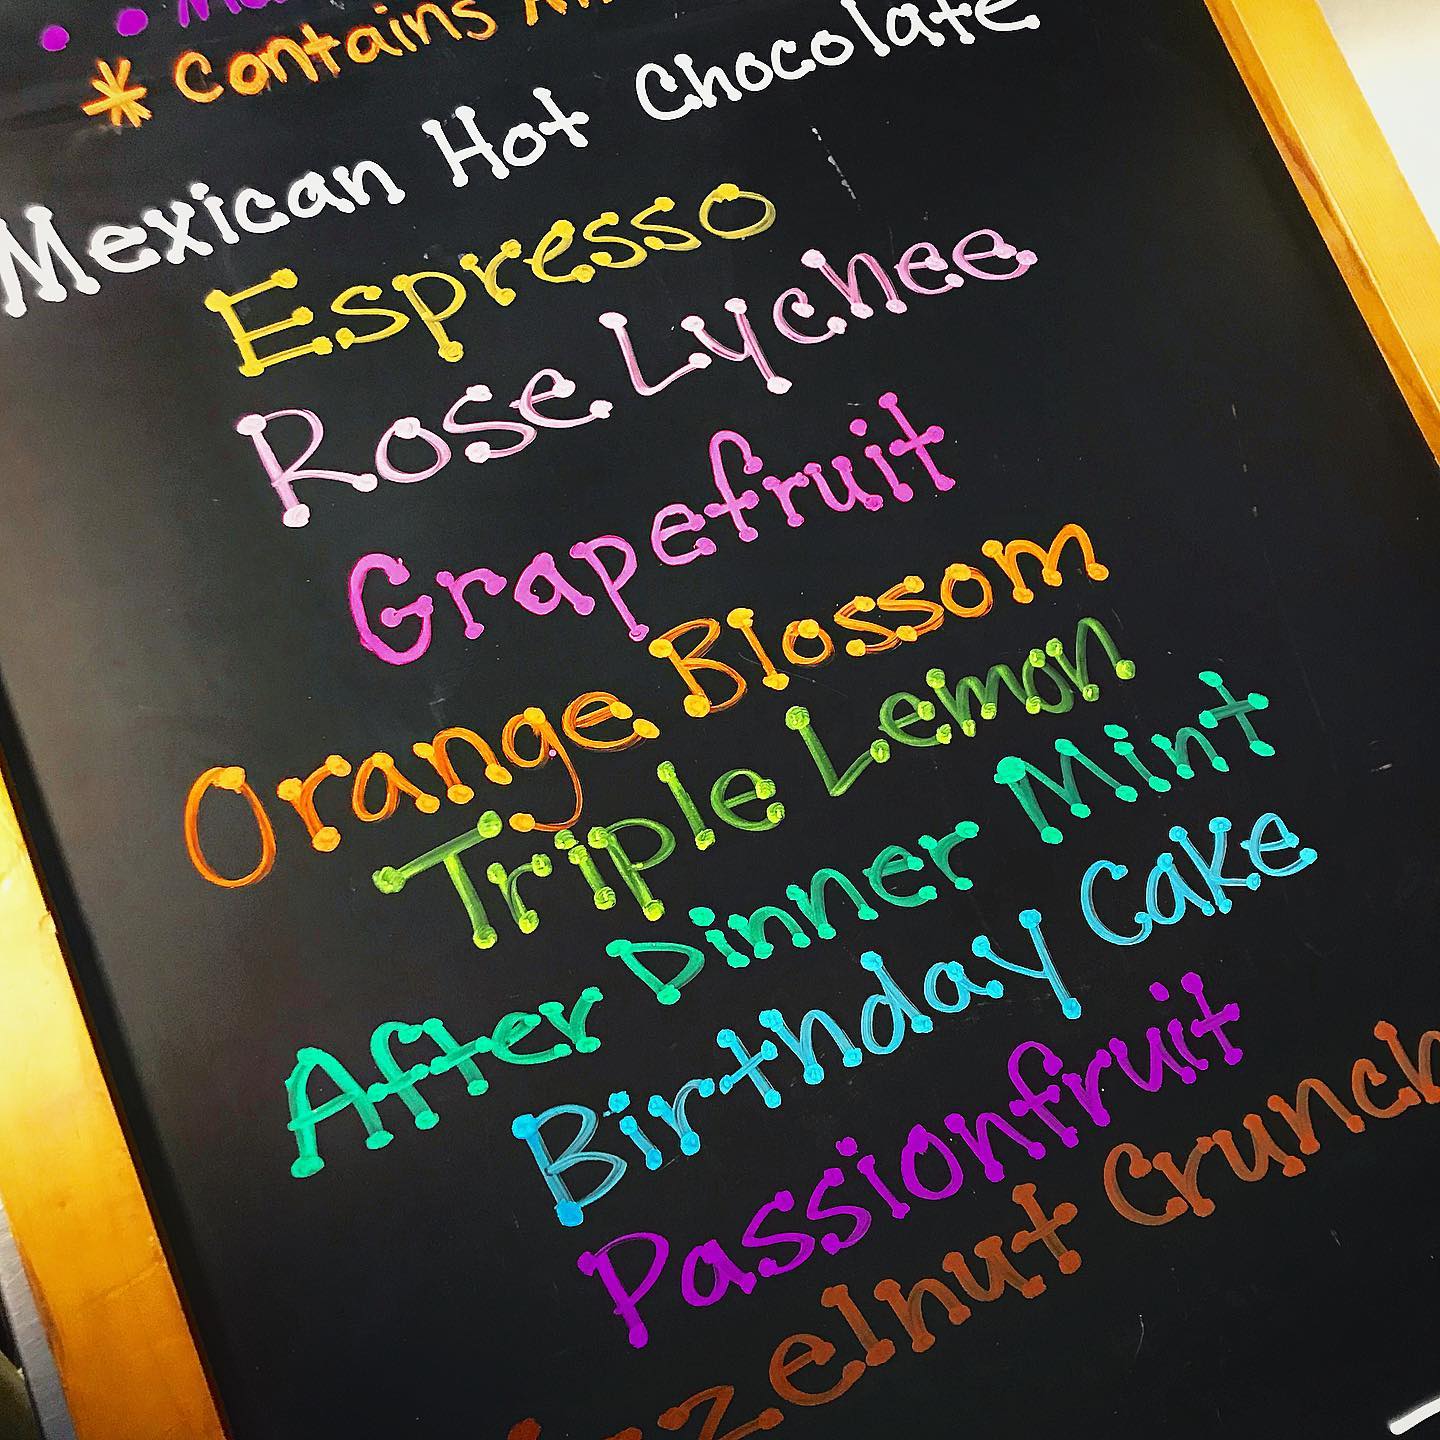 * Contains
Mexican Hot Chocolate
Espresso
Rose Lychee
Grapefruit
Orange Blossom
Triple Lemon
After Dinner Mint
Birthday Cake
Passionfruit
zelnut Crunch